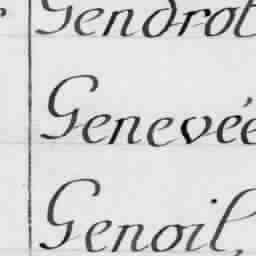 Gendrot
Genevée
Genoil,